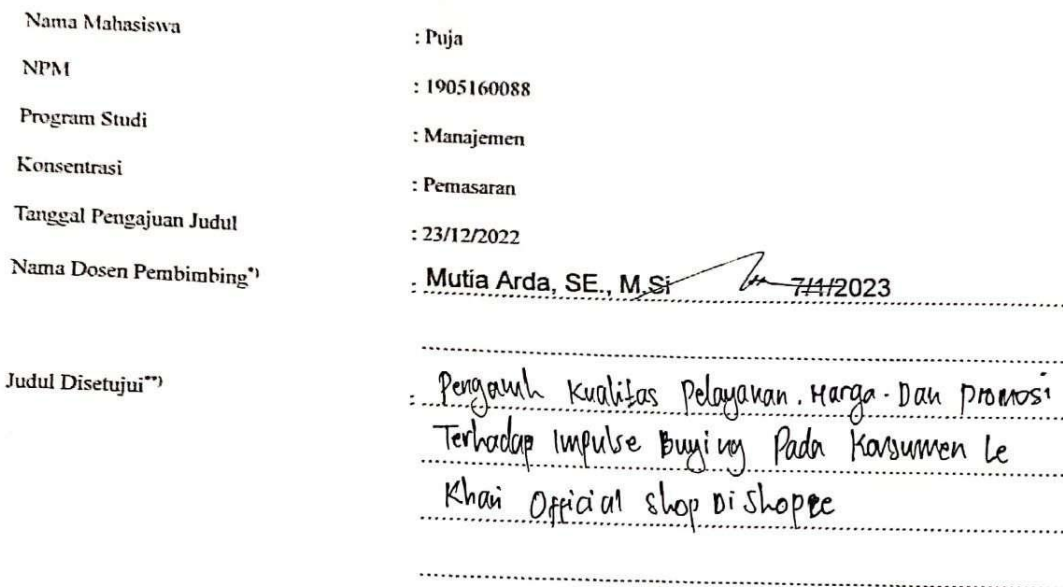 Nama Mahasiswa : Puja
NPM : 1905160088
Program Studi : Manajemen
Konsentrasi : Pemasaran
Tanggal Pengajuan Judul : 23/12/2022
Nama Dosen Pembimbing*) : Mutia Arda, SE., M.Si 7/1/2023
Judul Disetujui**) : Pengaruh Kualitas Pelayanan, Harga. Dan Promosi
Terhadap Impulse Buying Pada Konsumen Le
Khai Official Shop Di Shopee